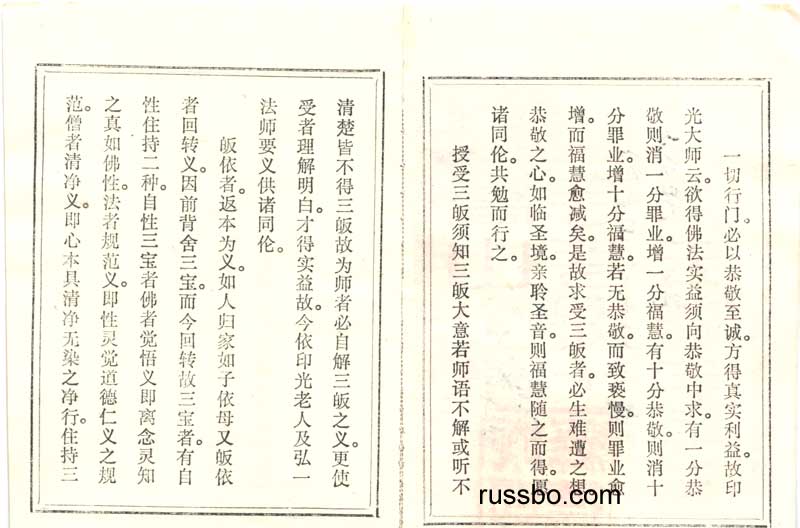 一切行门。必以恭敬至诚。方得真实利益。故印
光大师云。欲得佛法实益。须向恭敬中求。有一分恭
敬。则消一分罪业。增一分福慧。有十分恭敬。则消十
分罪业。增十分福慧。若无恭敬。而致亵慢。则罪业愈
增。而福慧愈减矣。是故求受三皈者。必生难遭之想。
恭敬之心。如临圣境。亲聆圣音。则福慧随之而得。愿
诸同伦。共勉而行之。
授受三皈须知三皈大意若师语不解或听不
清楚皆不得三皈故为师者必自解三皈之义。更使
受者理解明白。才得实益故。今依印光老人及弘一
法师要义供诸同伦。
皈依者。返本为义。如人归家如子依母又皈依
者回转义。因前背舍三宝。而今回转故三宝者有自
性住持二种。自性三宝者佛者觉悟义即离念灵知
之真如佛性。法者规范义。即性灵觉道德仁义之规
范。僧者清净义。即心本具清净无染之净行。住持三
russbo.com